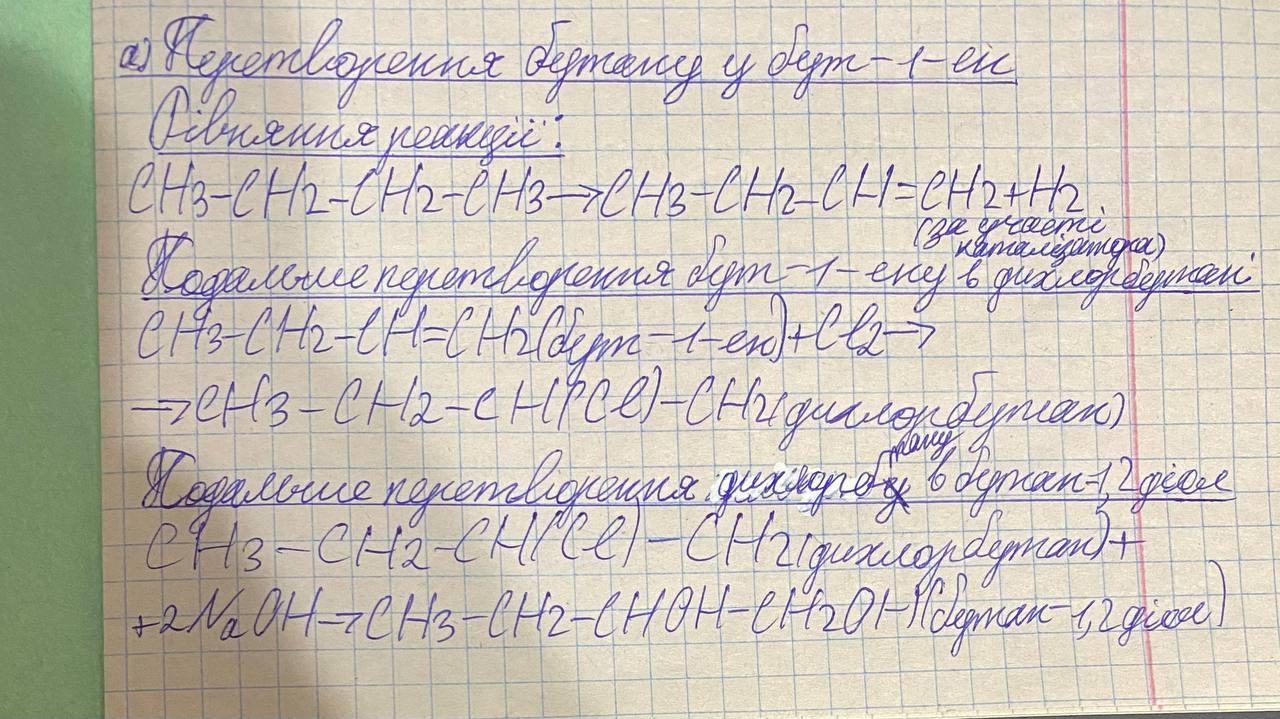 а) Перетворення бутану у бут-1-ен
Рівняння реакції:
CH3-CH2-CH2-CH3→CH3-CH2-CH=CH2+H2
(за участі
каталізатора)
Подальше перетворення бут-1-ену в дихлорбутані
CH3-CH2-CH=CH2(бут-1-ен)+Cl2→
→CH3-CH2-CH(Cl)-CH2(дихлорбутан)
Подальше перетворення дихлорбу в бутан-1,2 діол
CH3-CH2-CH(Cl)-CH2(дихлорбутан)+
+2NaOH→CH3-CH2-CHOH-CH2OH(бутан-1,2 діол)